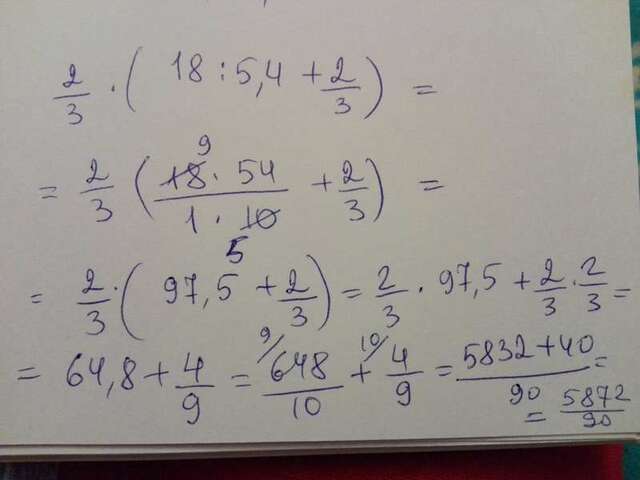 2/3 · ( 18 : 5,4 + 2/3 ) =
= 2/3 ( 18 · 54 / 1 · 10 + 2/3 ) =
9
5
= 2/3 · ( 97,5 + 2/3 ) = 2/3 · 97,5 + 2/3 · 2/3 =
= 64,8 + 4/9 = 9/ 648/10 + 10/ 4/9 = 5832+40/90 =
= 5872/90